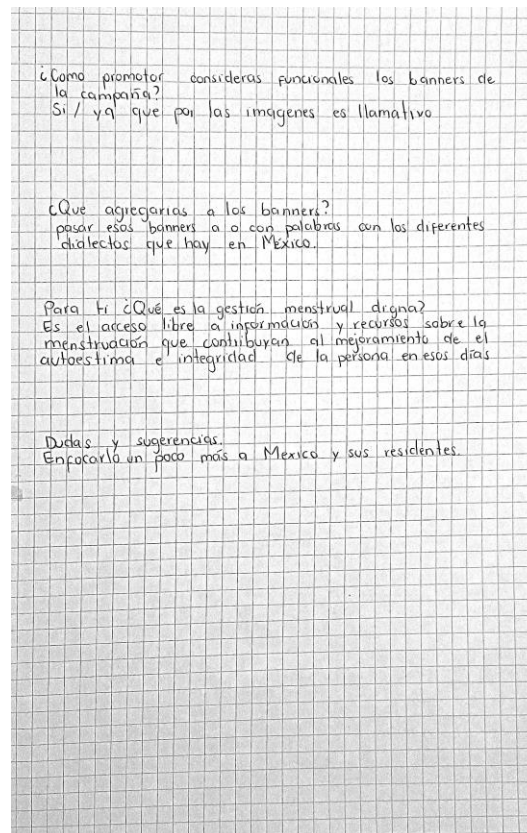 ¿Como promotor consideras funcionales los banners de
la campaña?
Si / ya que por las imagenes es llamativo
¿Que agregarias a los banners?
pasar esos banners a o con palabras con los diferentes
dialectos que hay en México.
Para ti ¿Qué es la gestión menstrual digna?
Es el acceso libre a información y recursos sobre la
menstruación que contribuyan al mejoramiento de el
autoestima e integridad de la persona en esos días
Dudas y sugerencias.
Enfocarlo un poco más a Mexico y sus residentes.